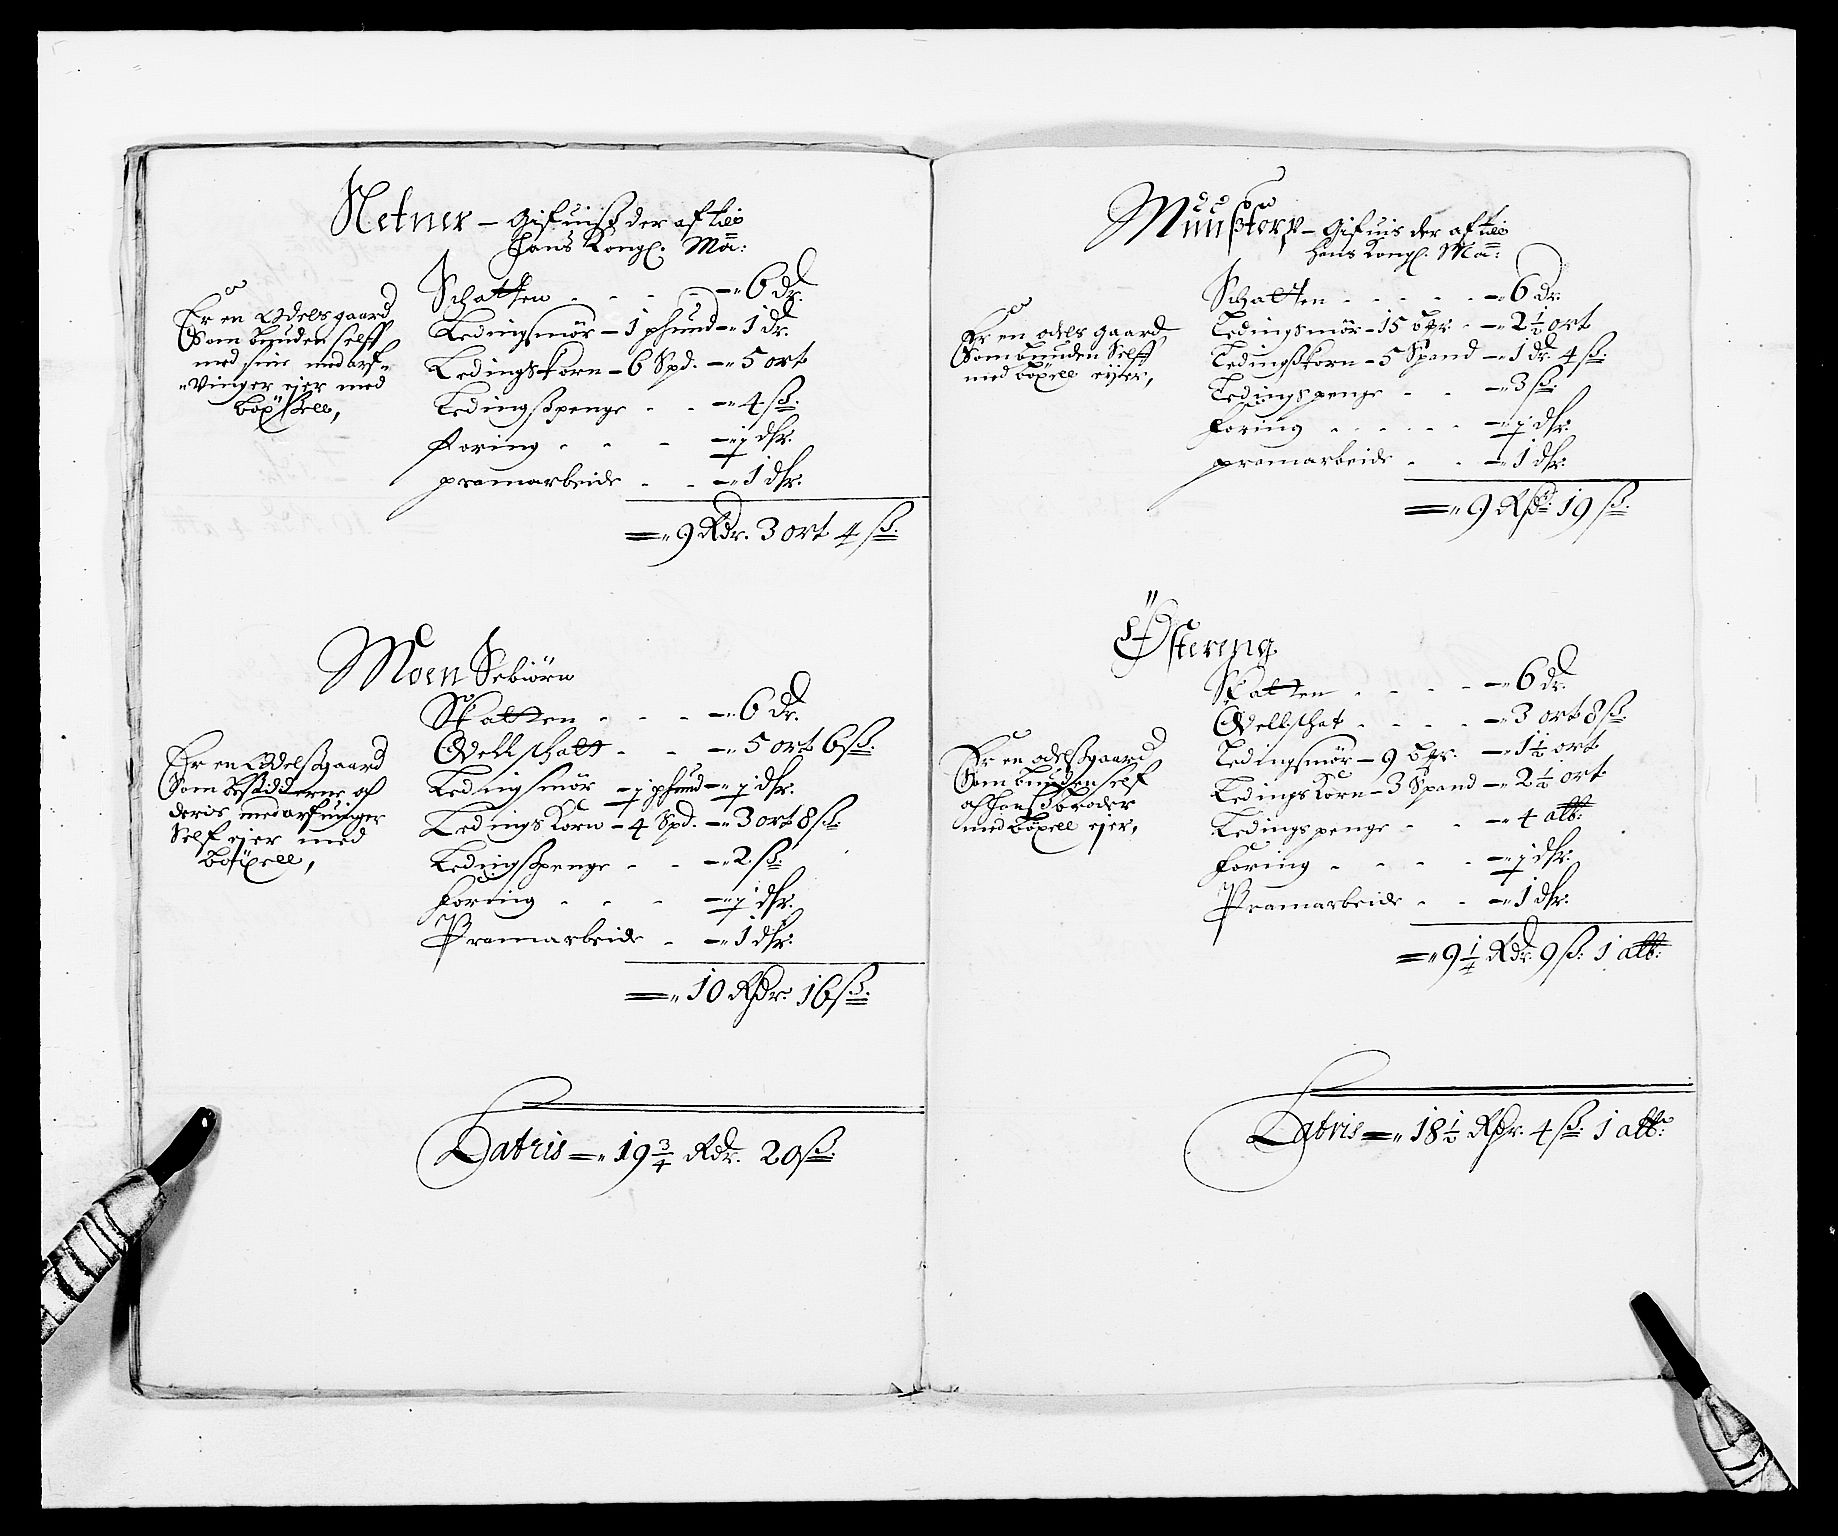 Netner – Gifuis der af til
Hans Kongl: Ma:
Er en Odels gaard
Som bunden selff
med sine medarf-
vinger ejer med
böxell,
Schatten - - - 6 dr.
Ledingsmör – 1 phund – 1 dr.
Ledingskorn – 6 Spd. – 5 ort
Ledingspenge - - 4 ß:
Foring - - - ½ dlr.
pramarbeide - - 1 dlr.
9 Rdr. 3 ort 4 ß:
Moen Sebiörn
Er en Odelsgaard
Som besidderne af
deris medarfuinger
Self ejer med
böxell,
Skatten - - - 6 dr.
Odellschatt - - 5 ort 6 ß:
Ledingsmör – ½ phund – ½ dlr.
Ledings Korn – 4 Spd. – 3 ort 8 ß:
Ledingspenge - - 2 ß:
Foring - - - ½ dlr.
Pramarbeide - 1 dlr.
10 Rdr. 16 ß:
Latris 19 ¾ Rdr. 20 ß:
Munstorp – Gifuis der af til
hans Kongl: Ma:
Er en odels gaard
Som bunden Selff
med böxell ejer,
Schatten - - - - - 6 dr.
Ledingsmör – 15 - 2 ½ ort
Ledingskorn – 5 Spand – 1 dr. 4 ß:
Ledingspenge - - 3 ß:
Foring - - - - - ½ dlr.
pramarbeide - - 1 dlr.
9 Rdr. 19 ß:
Östereng
Er en odelsgaard
Som bunden self
af hans broder
med böxell ejer,
Skatten - - - - 6 dr.
Odellschat - - - - 3 ort 8 ß:
Ledingsmör – 9 - 1 ½ ort
Ledings Korn – 3 Spand – 2 ½ ort
Ledingspenge - - 4 alb:
Foring - - - - ½ dlr.
Pramarbeide - - 1 dlr.
9 ¼ Rdr. 9 ß: 1 alb:
Latris 18 ½ Rdr. 4 ß: 1 alb: